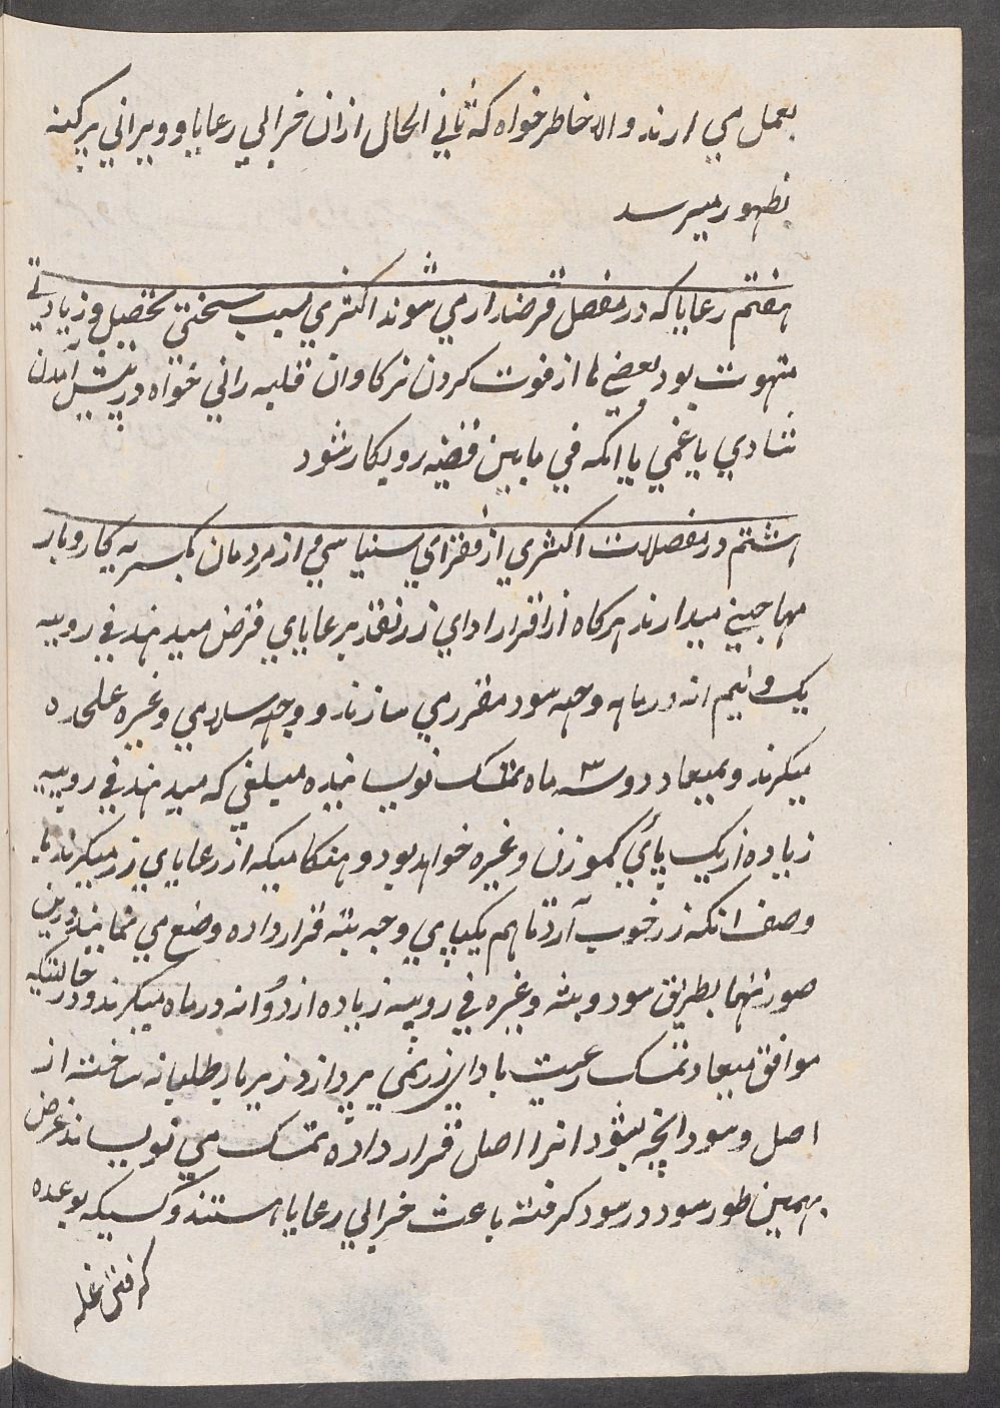 بعمل مي ارند والا خاطر خواه که ثاني الحال ازان خرابي رعايا و ويراني پرکنه
بظهور ميرسد
هفتم رعايا که در مفصل قرضدار مي شوند اکثري بسبب سختي تحصيل و زيادتي
بود بعضي ها از فوت کردن نرکاوان قلبه راني خواه در پيش آمدن
شادي يا غمي يا انکه في مابين قضيه رويکار شود
هشتم در مفصلات اکثري از فقراي سنياسي و از مردمان ديکر به کاروبار
مهاجني ميدارند هرکاه از اقرار اداي زر نقد برعاياي قرض ميدهند في روپيه
يک و نيم انه درماهه وجهه سود مقرر مي سازند و وجهه سلامي وغيره علحده
ميکرند و بميعاد دو سه ماه تمسک نويسانيده مبلغي که ميدهند في روپيه
زياده از يک پائي کموزن وغيره خواهد بود و هنکاميکه از رعاياي زر ميکرند با
وصف انکه زر خوب آرد تاهم يکپاي وجه بته قرار داده وضع مي نمايند درين
صورتها بطريق سود و بته وغيره في روپيه زياده از دو انه در ماه ميکرند و در حالتيکه
موافق ميعاد تمسک رعيت باداي زر نمي پردازد زيربار طلبانه ساخته از
اصل و سود انچه بشود انرا اصل قرار داده تمسک مي نويسانند غرض
بهمين طور سود در سود کرفته باعث خرابي رعايا هستند و کسيکه بوعده
کرفتن غله